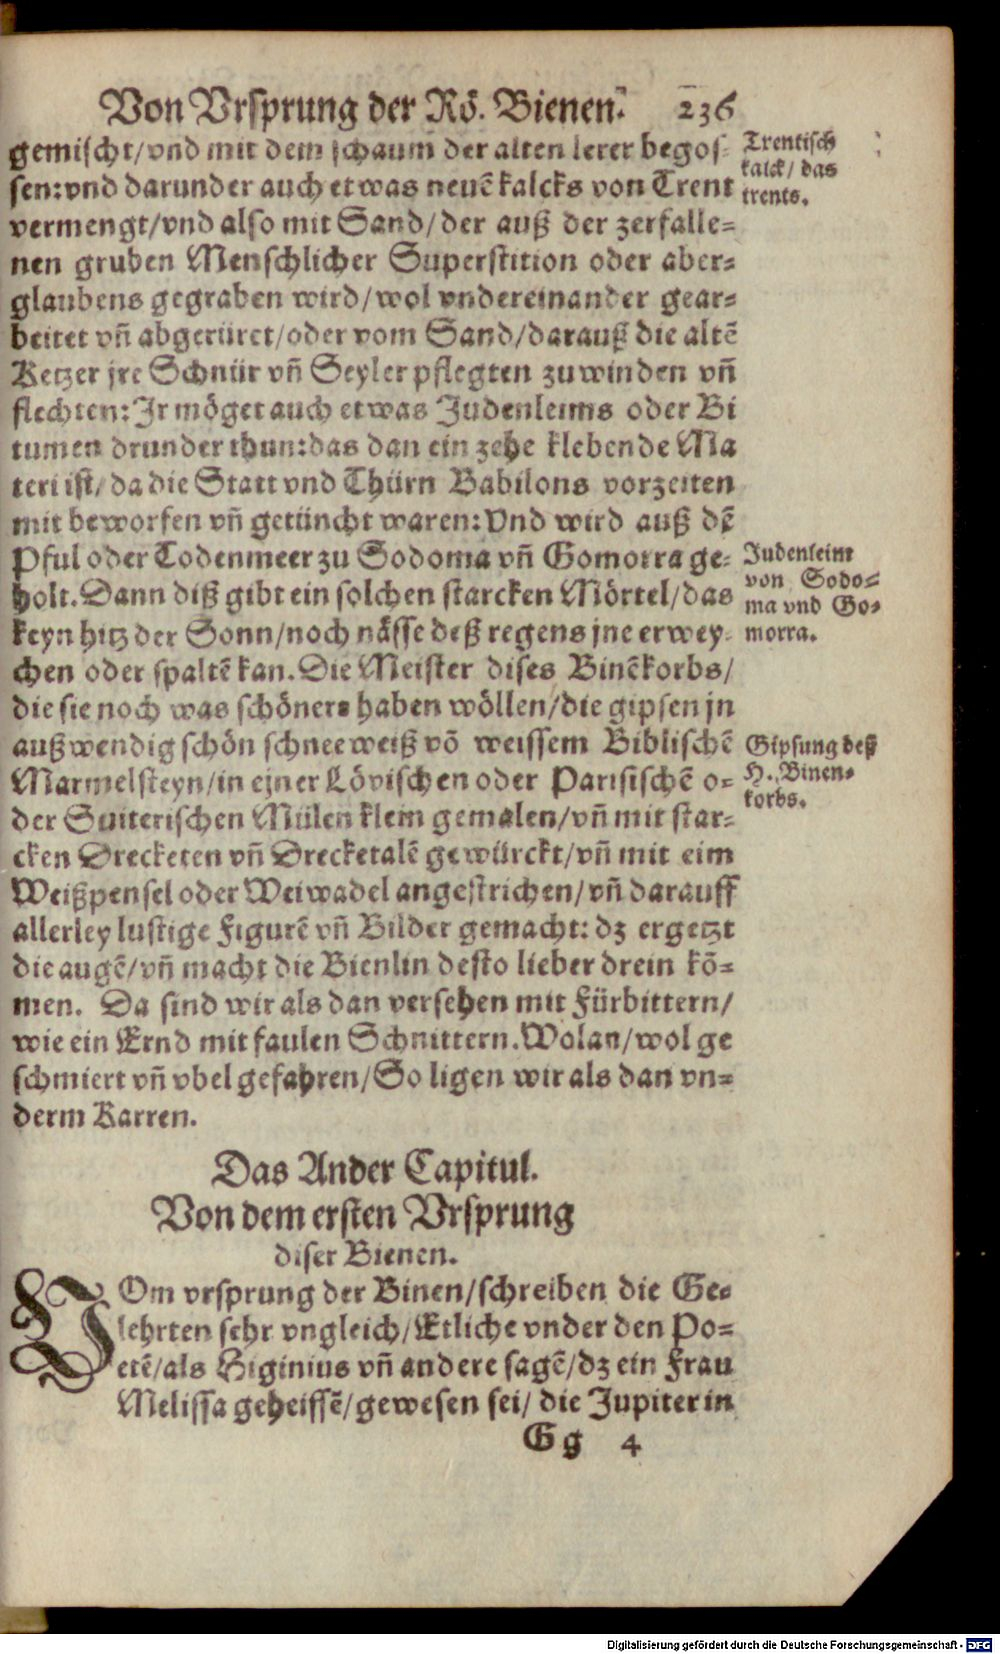 Von Vrsprung der Rö. Bienen. 236
gemischt/vnd mit dem schaum der alten lerer begos-
sen:vnd darunder auch etwas neuē kalcks von Trent
vermengt/vnd also mit Sand/der auß der zerfalle-
nen gruben Menschlicher Superstition oder aber-
glaubens gegraben wird/wol vndereinander gear-
beitet vñ abgerüret/oder vom Sand/darauß die altē
Ketzer jre Schnür vñ Seyler pflegten zuwinden vñ
flechten:Jr möget auch etwas Judenleims oder Bi
tumen drunder thun:das dan ein zehe klebende Ma
teri ist/da die Statt vnd Thürn Babilons vorzeiten
mit beworfen vñ getüncht waren:Vnd wird auß dē
Pful oder Todenmeer zu Sodoma vñ Gomorra ge-
holt.Dann diß gibt ein solchen starcken Mörtel/das
keyn hitz der Sonn/noch nässe deß regens jne erwey-
chen oder spaltē kan.Die Meister dises Binēkorbs/
die sie noch was schöners haben wöllen/die gipsen jn
außwendig schön schneeweiß vō weissem Biblischē
Marmelsteyn/in einer Lövischen oder Parisischē o-
der Suiterischen Mülen klein gemalen/vñ mit star-
cken Drecketen vñ Drecketalē gewürckt/vñ mit eim
Weißpensel oder Weiwadel angestrichen/vñ darauff
allerley lustige Figurē vñ Bilder gemacht: dz ergetzt
die augē/vñ macht die Bienlin desto lieber drein kō-
men. Da sind wir als dan versehen mit Fürbittern/
wie ein Ernd mit faulen Schnittern.Wolan/wol ge
schmiert vñ vbel gefahren/So ligen wir als dan vn-
derm Karren.
Trentisch
kalck/ das
trents.
Judenleim
von Sodo-
ma vnd Go-
morra.
Gipsung deß
H. Binen-
korbs.
Das Ander Capitul.
Von dem ersten Vrsprung
diser Bienen.
VOm vrsprung der Binen/schreiben die Ge-
lehrten sehr vngleich/Etliche vnder den Po-
etē/als Higinius vñ andere sagē/dz ein Frau
Melissa geheissē/gewesen sei/ die Jupiter in
Gg 4
Digitalisierung gefördert durch die Deutsche Forschungsgemeinschaft - DFG